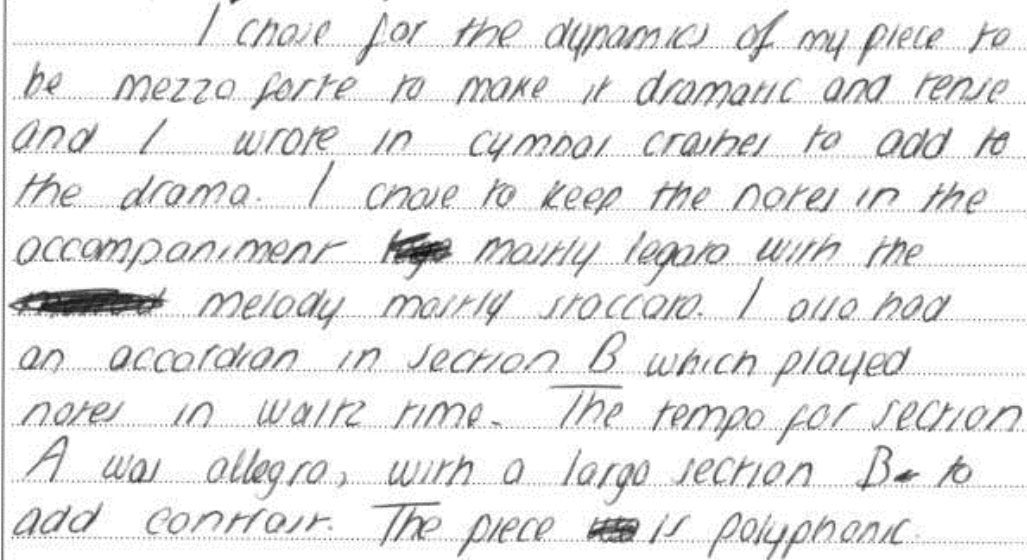 I chose for the dynamics of my piece to
be mezzo forte to make it dramatic and tense
and I wrote in cymbal crashes to add to
the drama. I chose to keep the notes in the
accompaniment mostly legato with the
melody mostly staccato. I also had
an accordian in section B which played
notes in waltz time. The tempo for section
A was allegro, with a largo section B to
add contrast. The piece is polyphonic.